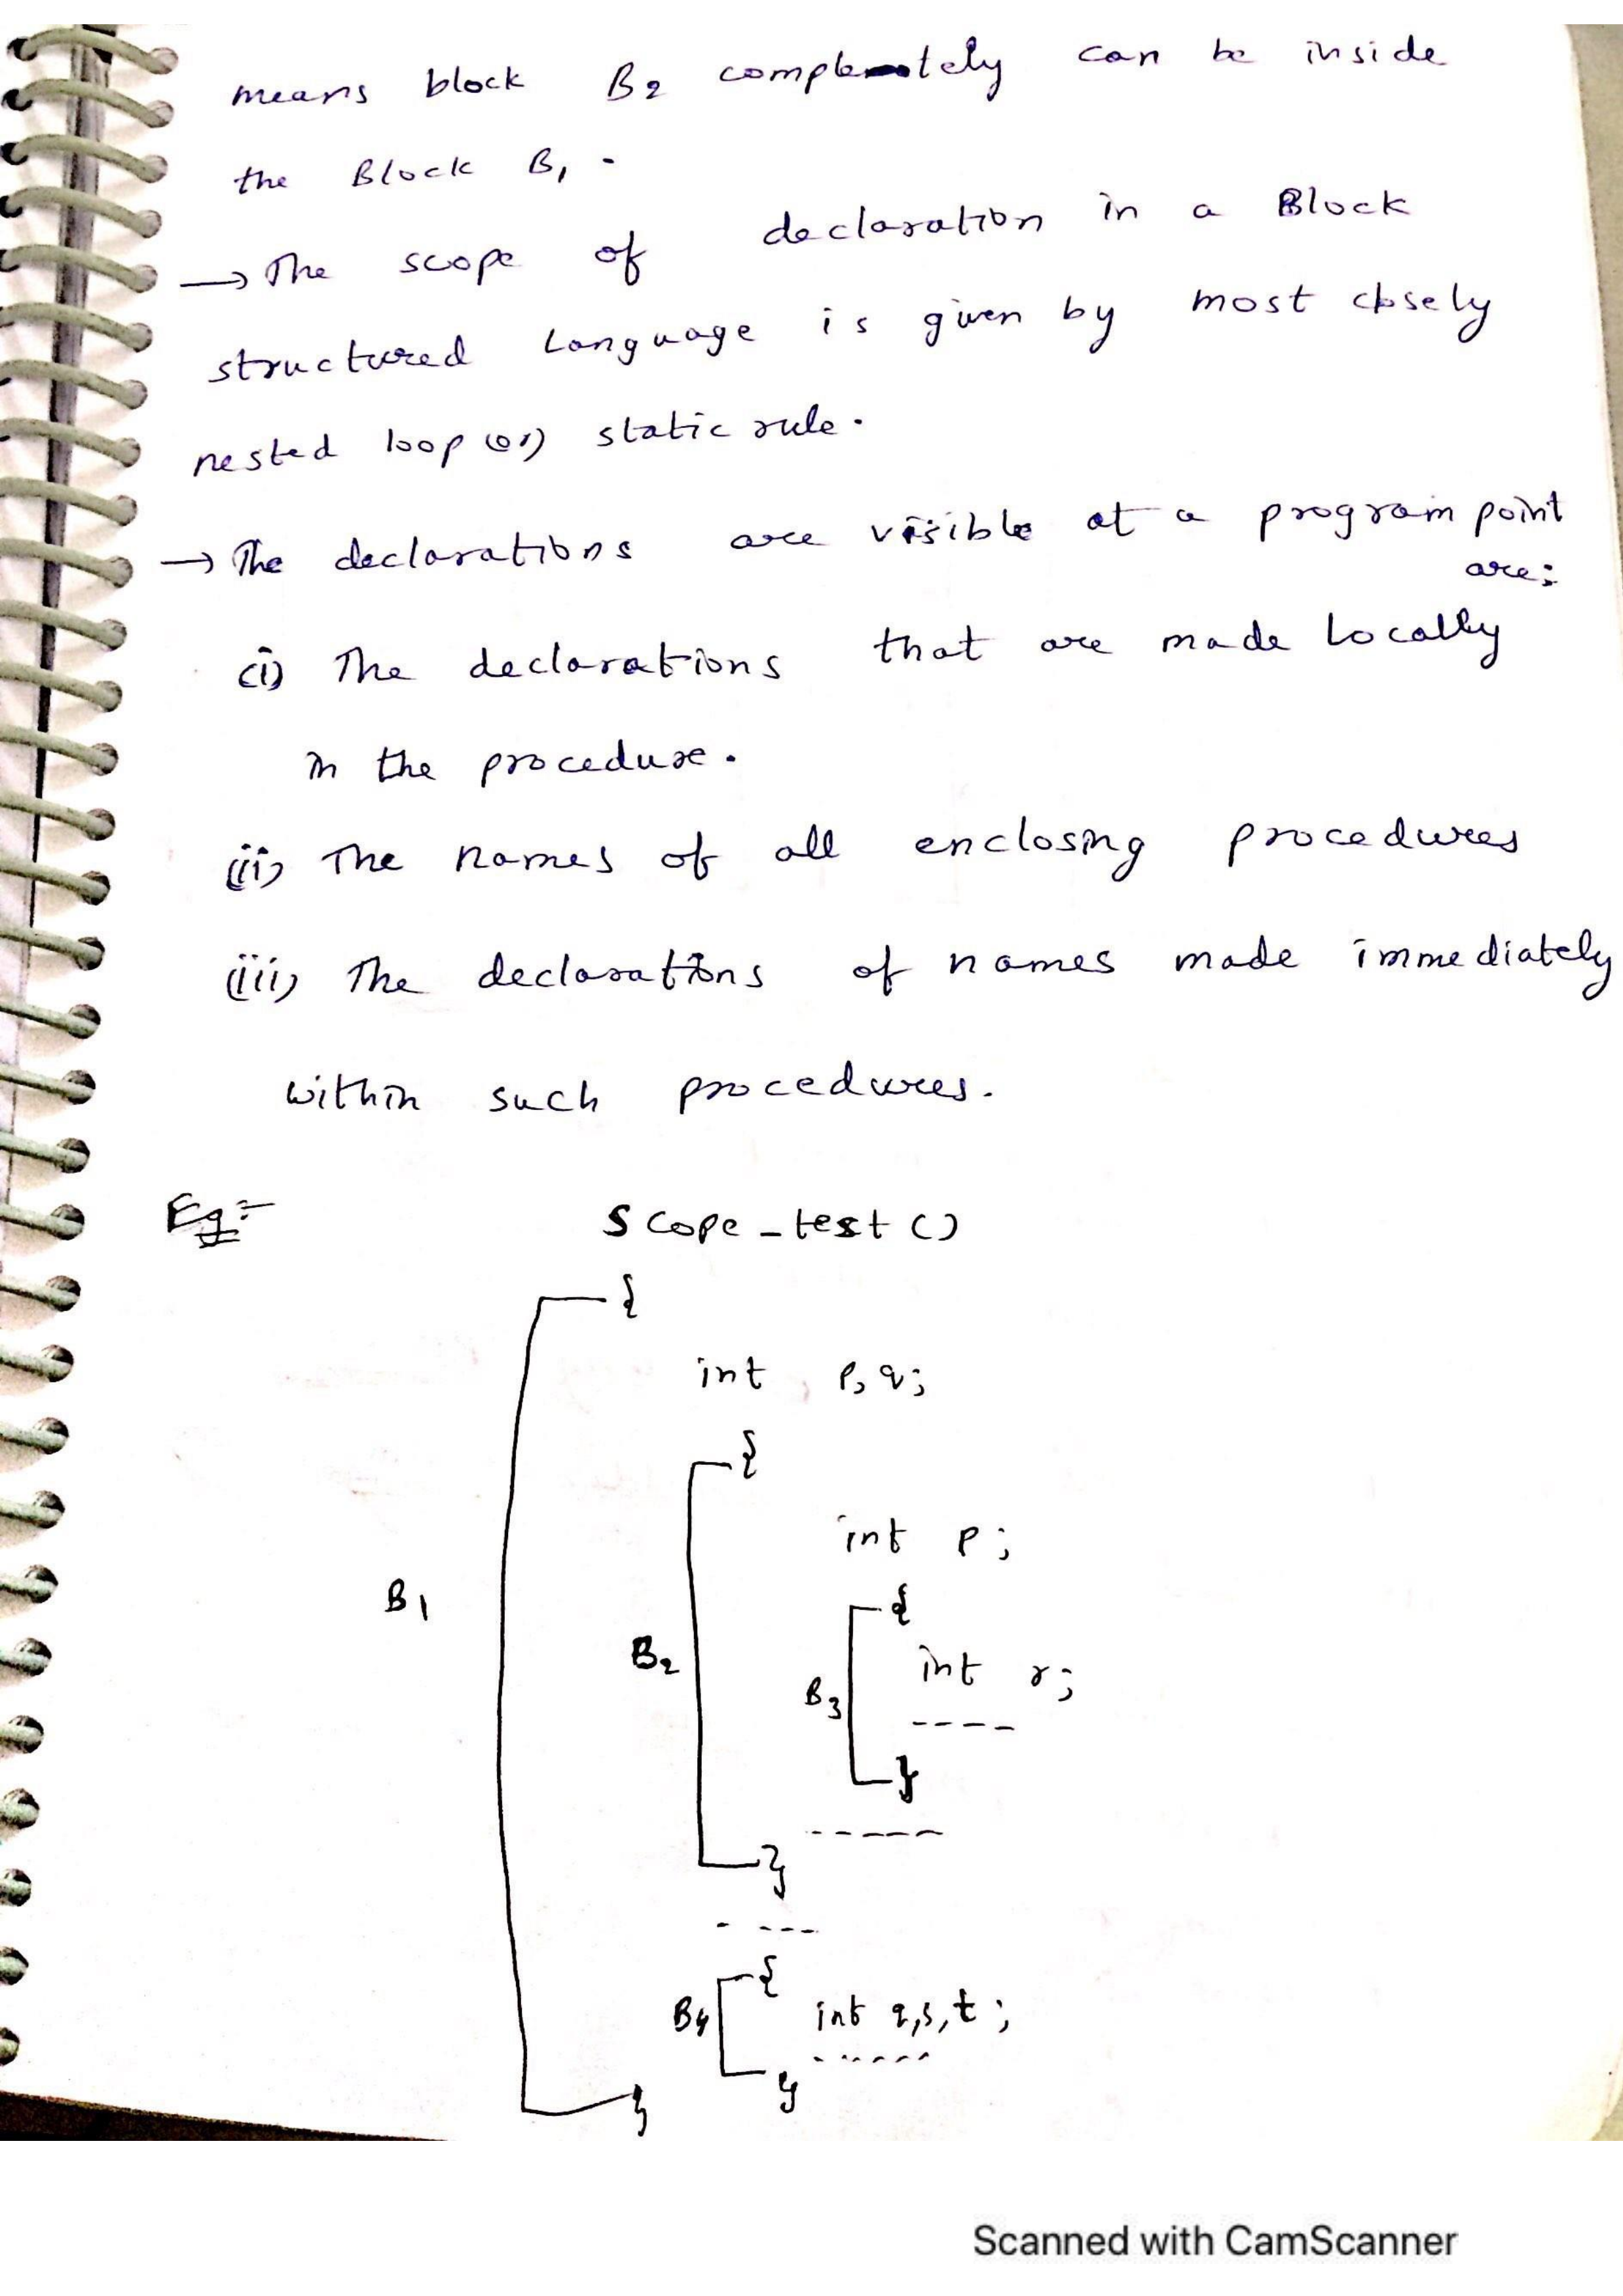 means block B2 completely can be inside
the Block B1.
→ The scope of declaration in a Block
structured Language is given by most closely
nested loop (or) static rule.
→ The declarations are visible at a program point
are:
(i) The declarations that are made Locally
in the procedure.
(ii) The names of all enclosing procedures
(iii) The declarations of names made immediately
within such procedures.
Eg:-
Scope_test()
{
int p,q;
{
int p;
B1
{
B2
int r;
B3
----
}
-----
}
- ---
{
B4
int q,s,t;
------
}
}
Scanned with CamScanner